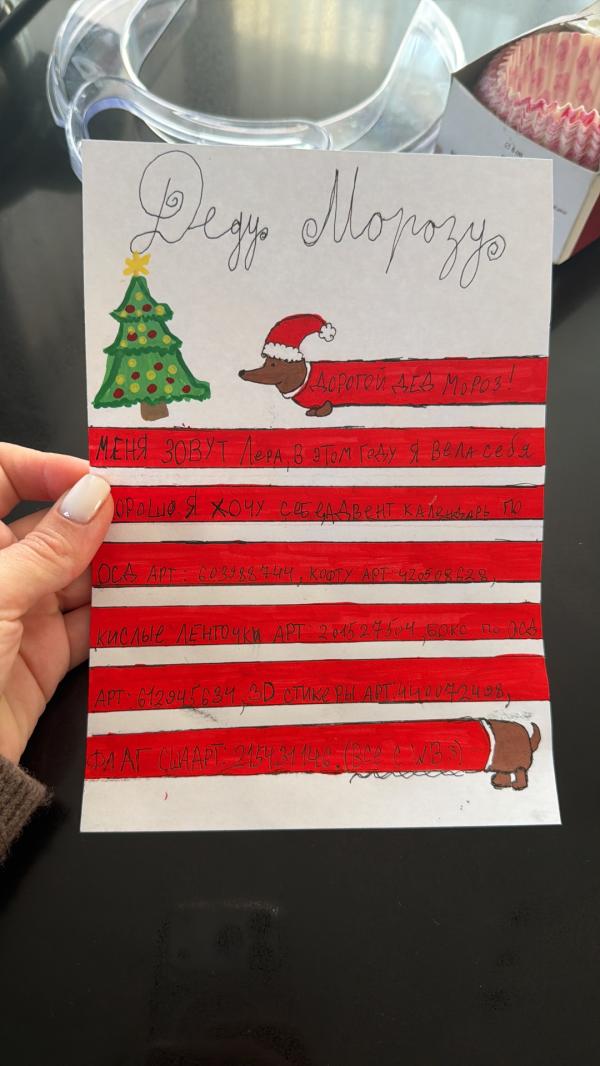 Деду Морозу
ДОРОГОЙ ДЕД МОРОЗ!
МЕНЯ ЗОВУТ Лера, В ЭТОМ ГОДУ Я ВЕЛА себя
ХОРОШО. Я ХОЧУ СЕБЕ АДВЕНТ КАЛЕНДАРЬ ПО
ОСД АРТ: 603988744, КОФТУ АРТ: 420508628,
КИСЛЫЕ ЛЕНТОЧКИ АРТ: 201527504, БОКС ПО ОСД
АРТ: 612945634, 3D СТИКЕРЫ АРТ: 440072498,
ФЛАГ США АРТ: 215431146. (ВСЕ С WB